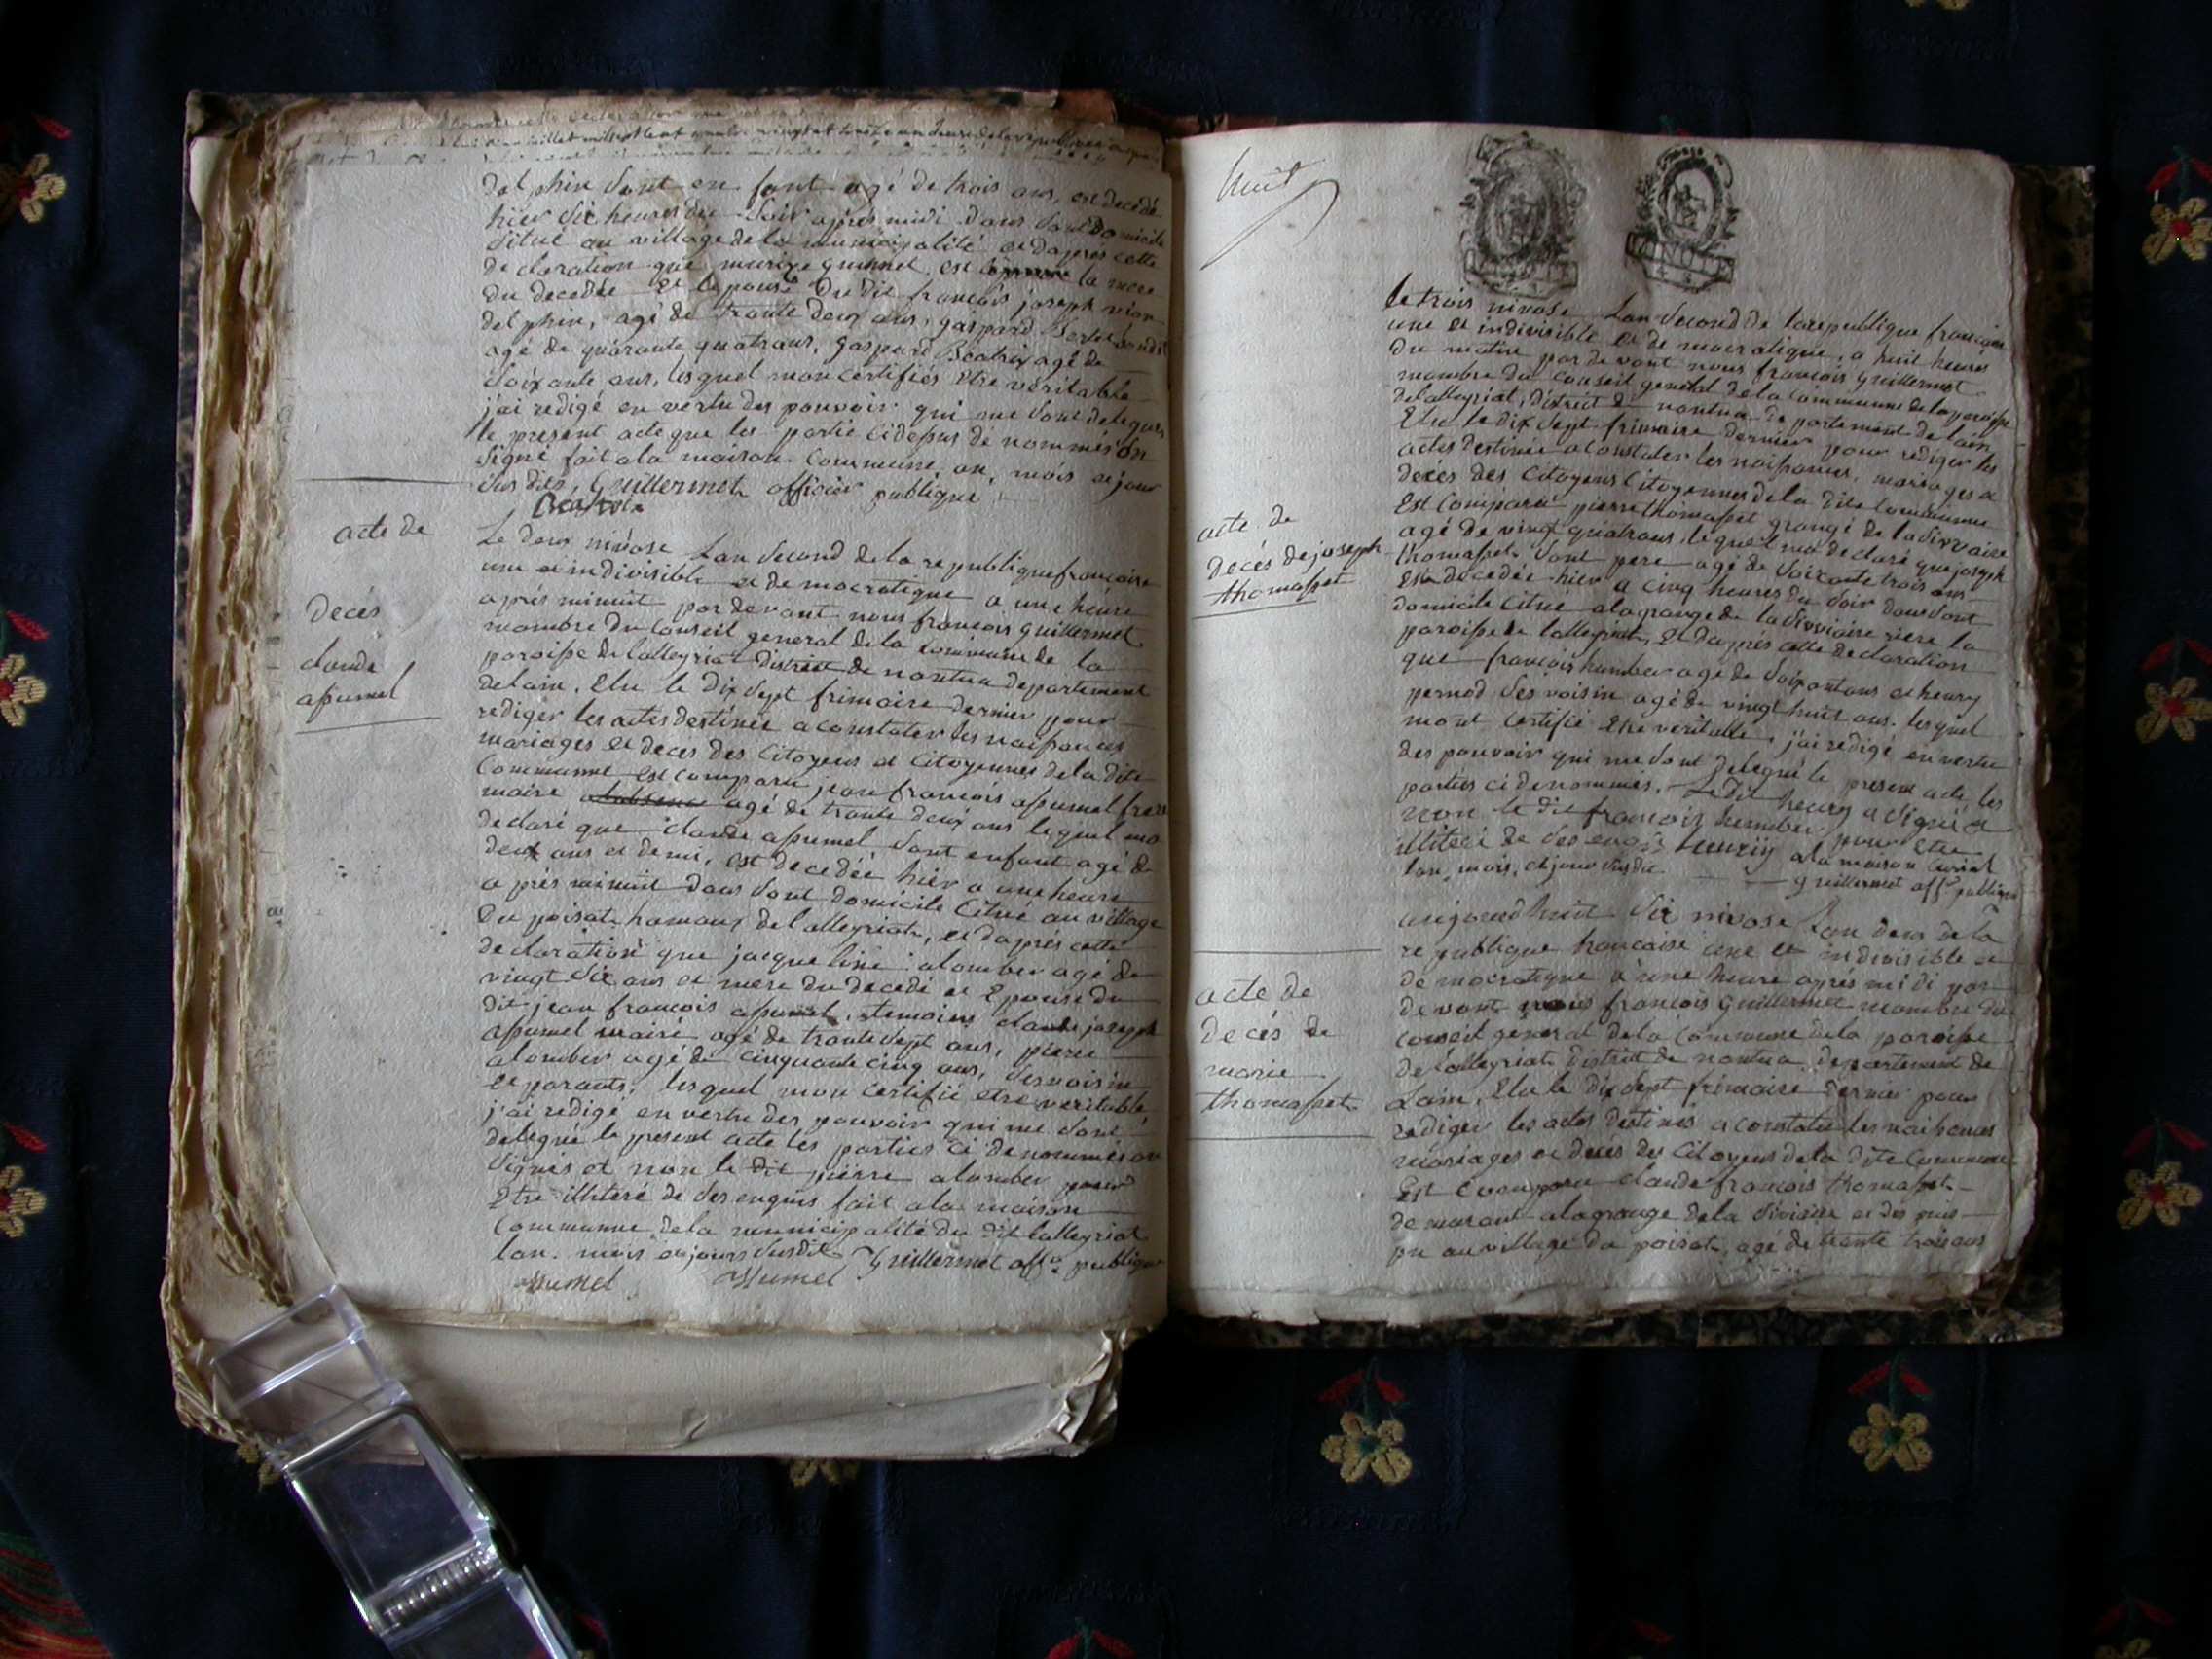 delphin sont en fant agé de trois ans, est decedé
hier six heures du soir apres midi dans sont domicile
situé au village de la municipalité et daprés cette
declaration que guinnet est la mere
du decedée et Epouse du dit francois joseph vion
delphin, agé de trante deux ans, gaspard
agé de quarante quatrans, gaspard Beatrix agé de
soixante ans, lesquel mon certifiés etre véritable
j'ai redigé en vertu des pouvoir qui me sont delegues
le present acte que les partie cidessus dénommés on
signé fait a la maison Commune, an, mois et jour
susdits, Guillermet officier publique
Beatrix
acte de
Decés
claude
assumel
Le deux nivose Lan second de la republique francaise
une et indivisible et democratique a une heure
aprés minuit pardevant nous francois guillermet
mambre du Conseil general de la commune de la
paroisse de lalleyriat district de nantua departement
delain, Elu le dix sept frimaire dernier pour
rediger les actes destinée a constater les naissances
mariages et deces des Citoyens et Citoyennes de la dite
Commune est comparu jean francois assumel
maire agé de trante deux ans lequel ma
declaré que claude assumel sont enfant agé de
deux ans et demi, est decedée hier a une heure
aprés minuit dans sont domicile Citué au village
du poisat hamaux de lalleyriat, et daprés cette
declaration que jacqueline alomber agé de
vingt six ans et mere du decedé et Epouse du
dit jean francois assumel, temoins claude joseph
assumel mairé agé de trante sept ans, pierre
alomber agé de cinquante cinq ans, ses voisin
et parants, lesquel mon certifié etre veritable
j'ai redigé en vertu des pouvoir qui me sont
delegué le present acte les parties ci denommés on
signés et non le dit pierre alomber pour
Etre illiteré de ses enquis fait a la maison
Commune de la municipalité du dit lalleyriat
lan, mois et jours susdit Guillermet off.r publique
assumel assumel
huit
le trois nivose Lan second de la republique francaise
une et indivisible et democratique, a huit heures
du matin par devant nous francois guillermet
mambre du conseil general de la Commune de la paroisse
de lalleyriat, district de nantua departement de lain
Elu le dix sept frimaire dernier pour rediger les
actes destinée a Constater les naissances, mariages et
decés des Citoyens Citoyennes de la dite Commune
Est Comparu pierre thomasset grangé de la
agé de vingt quatrans, lequel ma declaré que joseph
thomasset sont pere agé de soixante trois ans
est decedée hier a cinq heures du soir dans sont
domicile Citué a la grange de la riere la
paroisse de lalleyriat, Et daprés cette declaration
que francois humber agé de soixantans et henry
pernod ses voisin agé de vingt huit ans, lesquel
mont certifié etre veritable, j'ai redigé en vertu
des pouvoir qui me sont delegué le present acte, les
parties ci denommés, Le dit henry a signé et
non le dit francois humber pour etre
illiteré de ses a la maison
lan, mois, et jour susdit guillermet off.r publique
acte de
decés de joseph
thomasset
aujourdhuit six nivose Lan deux de la
republique francaise une et indivisible et
democratique a une heure aprés midi par
devant nous francois guillermet mambre du
conseil general de la Commune de la paroisse
de lalleyriat, district de nantua departement de
Lain, Elu le dix sept frimaire dernier pour
rediger les actes destinés a constater les naissances
mariages et decés des Citoyens de la dite Commune
Est Comparu claude francois thomasset
demeurant a la grange de la et des
au village du poisat, agé de trente trois ans
acte de
decés de
marie
thomasset